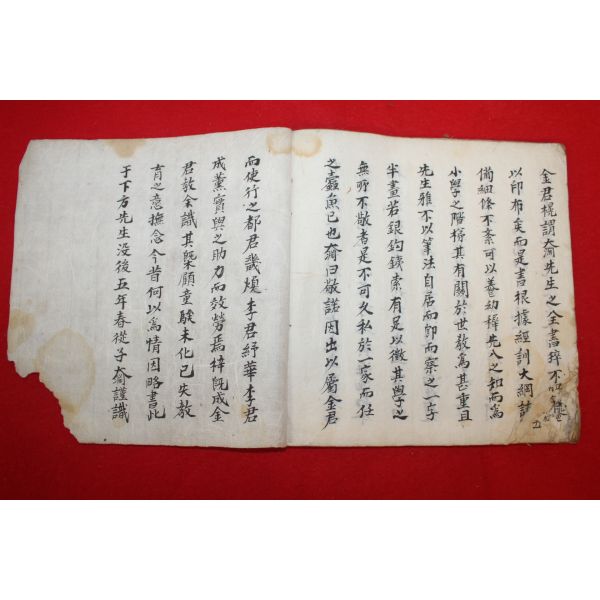 金君榥謂奫先生之全書猝不
以印布矣而是書根據經訓大綱
備細條不紊可以養幼穉先入之知而爲
小學之階梯其有關於世敎爲甚重且
先生雅不以筆法自居而卽而察之一字
半畫若銀鉤鐵索有足以徵其學之
無所不敬者是不可久私於一家而任
之蠹魚已也奫曰敬諾因出以屬金君
而使行之都君畿煥李君紓華李君
成薰實與之助力而效勞焉梓旣成金
君敎余識其槩顧童騃未化已失敎
育之意撫念今昔何以爲情因略書此
于下方先生沒後五年春從子奫謹識